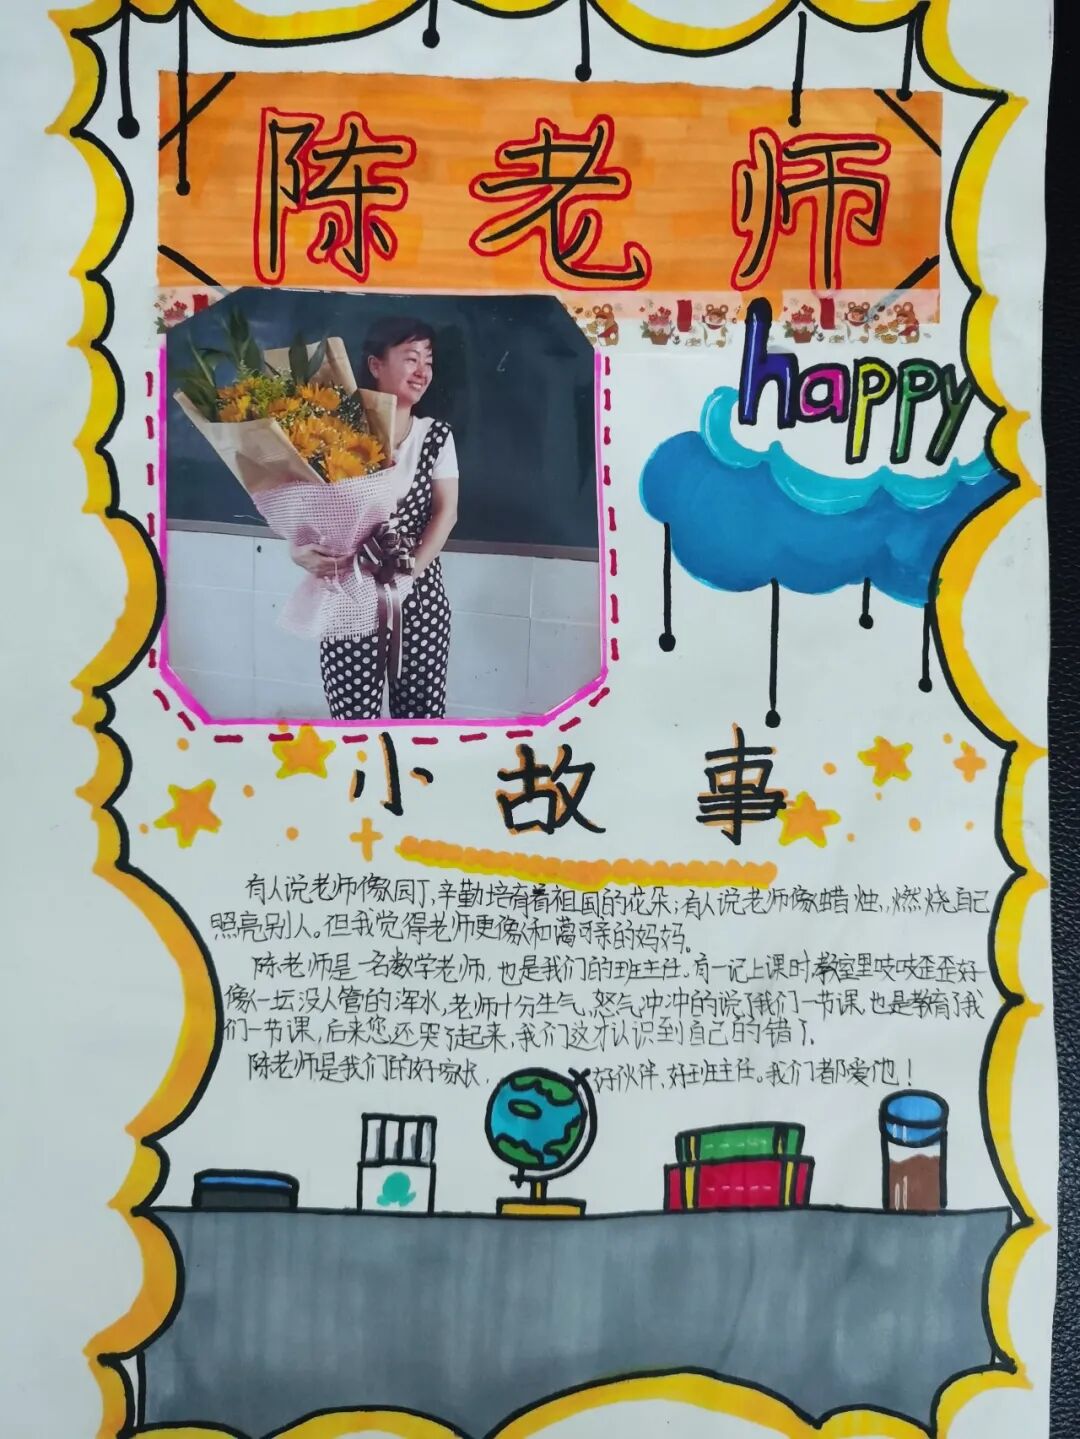 陈老师
happy
小故事
有人说老师像园丁,辛勤培育着祖国的花朵;有人说老师像蜡烛,燃烧自己
照亮别人。但我觉得老师更像和蔼可亲的妈妈。
陈老师是一名数学老师,也是我们的班主任.有一记上课时教室里吱吱歪歪好
像一坛没人管的浑水,老师十分生气,怒气冲冲的说了我们一节课,也是教育了我
们一节课,后来您还哭了起来,我们这才认识到自己的错了.
陈老师是我们的好家长,好伙伴,好班主任。我们都爱他!